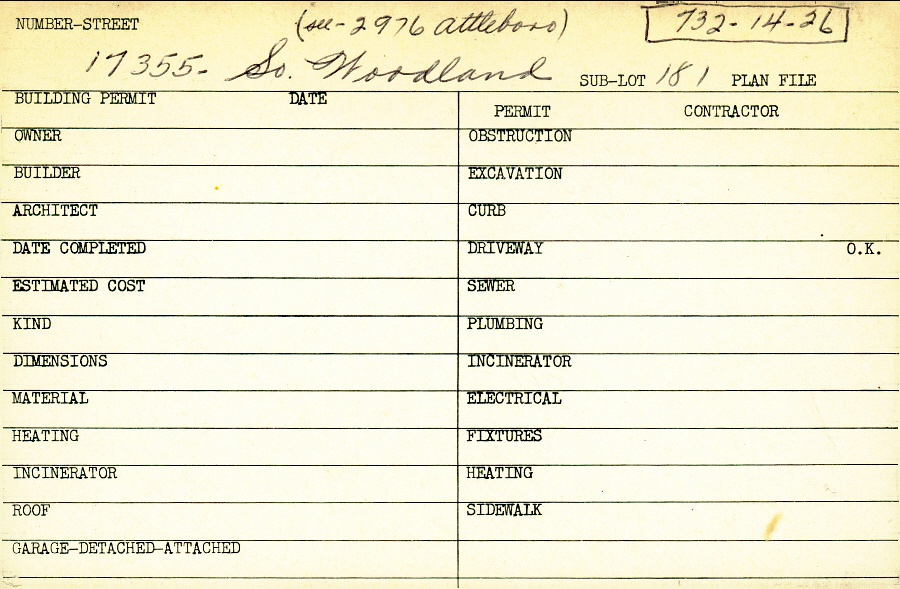 NUMBER-STREET (see-2976 Attleboro) 732-14-26
17355- So. Woodland SUB-LOT 181 PLAN FILE
BUILDING PERMIT DATE
PERMIT CONTRACTOR
OWNER OBSTRUCTION
BUILDER EXCAVATION
ARCHITECT CURB
DATE COMPLETED DRIVEWAY O.K.
ESTIMATED COST SEWER
KIND PLUMBING
DIMENSIONS INCINERATOR
MATERIAL ELECTRICAL
HEATING FIXTURES
INCINERATOR HEATING
ROOF SIDEWALK
GARAGE-DETACHED-ATTACHED